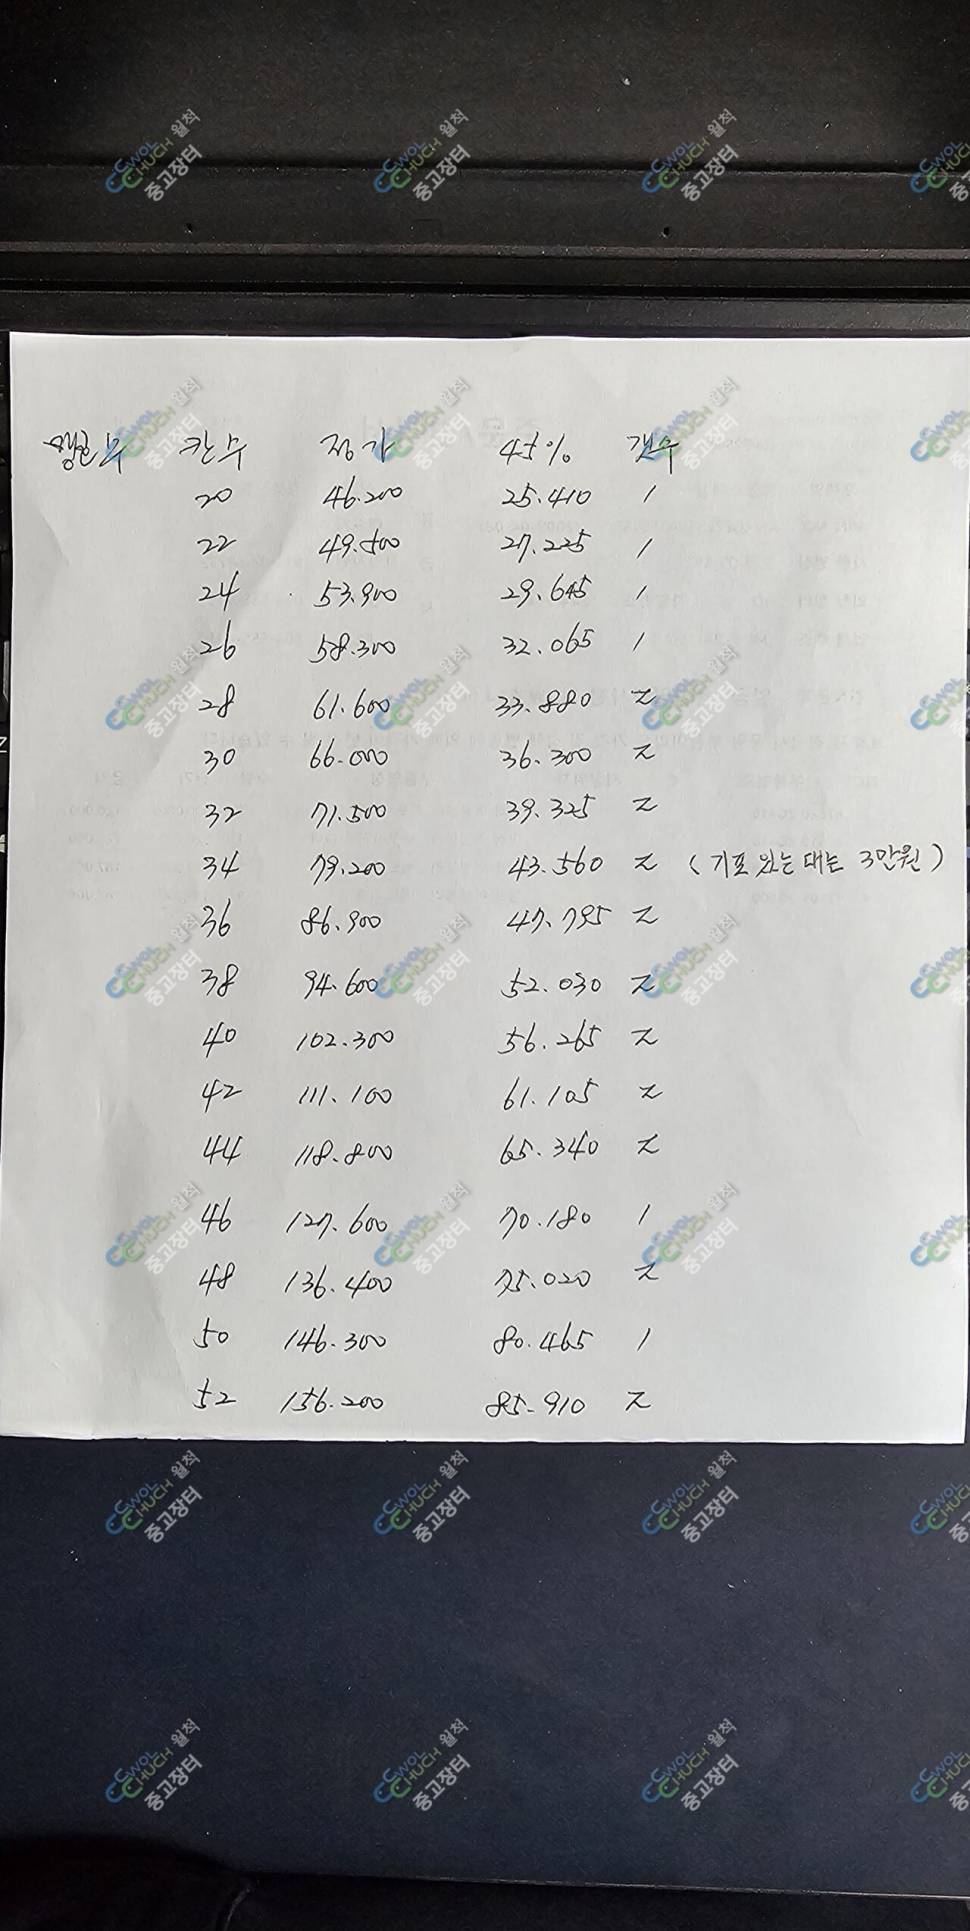 칸수 정가 45% 갯수
20 46.200 25.410 1
22 49.500 27.225 1
24 53.900 29.645 1
26 58.300 32.065 1
28 61.600 33.880 2
30 66.000 36.300 2
32 71.500 39.325 2
34 79.200 43.560 2 (기포 있는 대는 3만원)
36 86.900 47.795 2
38 94.600 52.030 2
40 102.300 56.265 2
42 111.100 61.105 2
44 118.800 65.340 2
46 127.600 70.180 1
48 136.400 75.020 2
50 146.300 80.465 1
52 156.200 85.910 2
CWOL
CHUCH 월척
중고장터